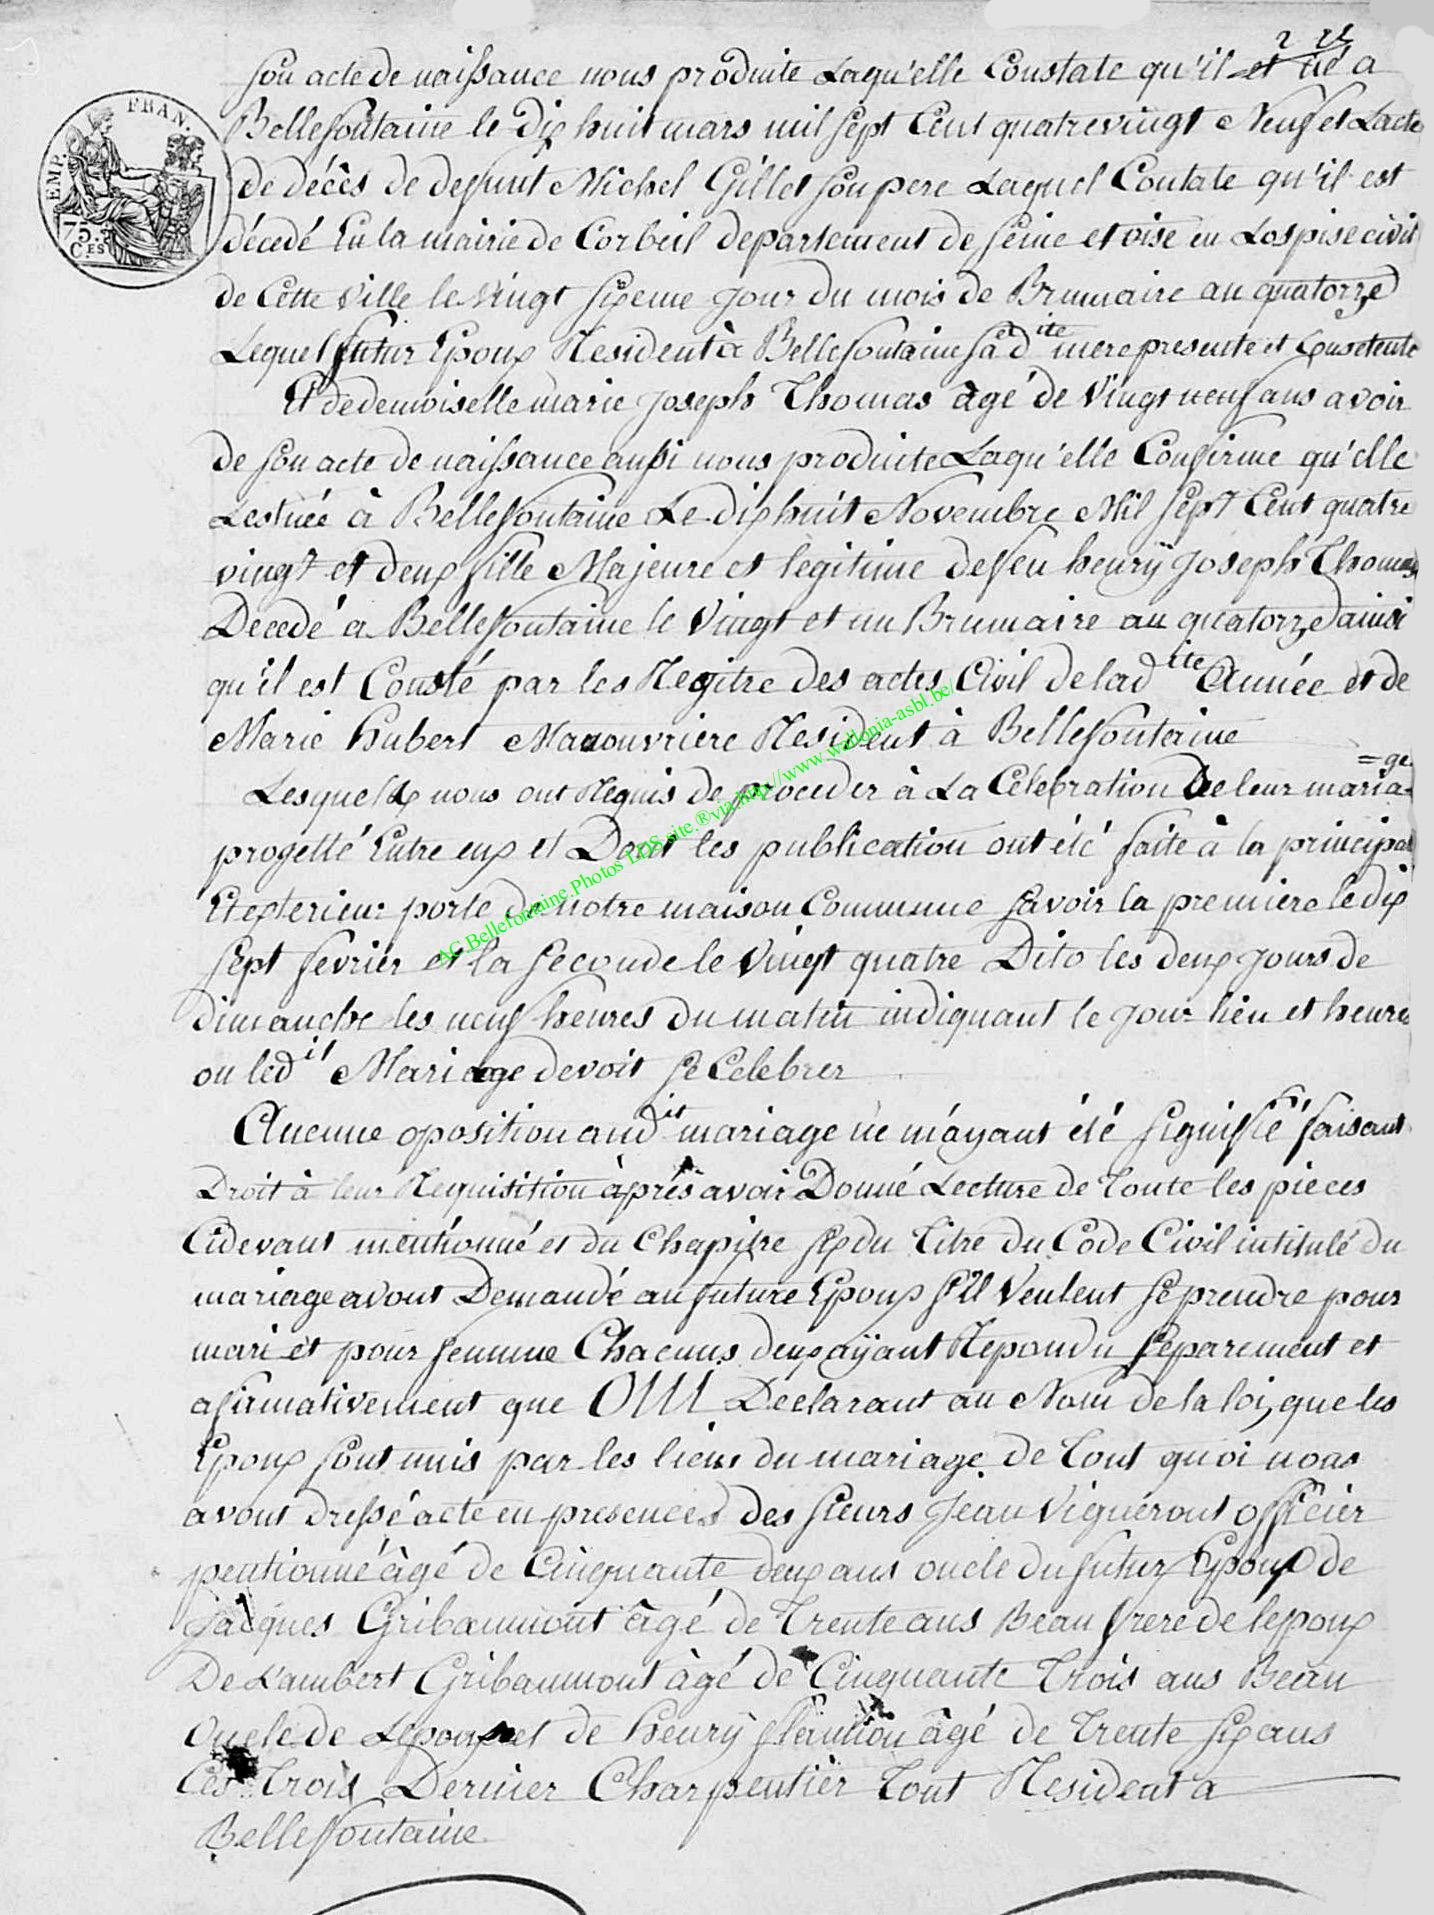 son acte de naissance nous produite Laqu'elle Constate qu'il et né a
Bellefontaine le Dix huit mars mil sept Cent quatrevingt Neuf et Lacte
de décès de defunt Michel Gillet son pere Lequel Contate qu'il est
décedé En la mairie de Corbeil departement de Seine et oise en Lospise civil
de Cette Ville le Vingt sixeme Jour du mois de Brumaire an quatorze
Lequel futur Epoux Resident à Bellefontaine sa dite mere presente et Consetente
Et dedemoiselle marie Joseph Thomas âgé de Vingt neuf ans avoir
de son acte de naissance aussi nous produite Laqu'elle Confirme qu'elle
Lestnée à Bellefontaine Le dix huit Novembre Mil sept Cent quatre
vingt et deux fille Majeure et legitime de feu henrÿ Joseph Thomas
Decedé a Bellefontaine le Vingt et un Brumaire an quatorze ainsi
qu'il est Consté par les Regitre des actes Civil de ladite Année et de
Marie hubert Manouvriere Resident à Bellefontaine
Lesquelx nous ont Requis de proceder à La Célebration de leur maria=ge
progetté Entre eux et Dont les publication ont été faite à la principal
Et exterieur porte de notre maison Commune savoir la premiere le dix
sept fevrier et la seconde le Vingt quatre Dito les deux Jours de
dimanche les neuf heures du matin indiquant le Jour lieu et heure
ou ledit Mariage devoit se Celebrer
Aucune oposition audit mariage ne m'ayant été signifié faisant
Droit à leur Requisition àprés avoir Donné Lecture de Toute les pieces
Cidevant mentionné et du Chapitre six du Titre du Code Civil intitulé du
mariage avont Demandé au future Epoux s'il Veulent se prendre pour
mari et pour femme Chacuns deux aÿant Repondu separement et
afirmativement que OUI Declarant au Nom de la loi, que les
Epoux sont unis par les liens du mariage de Tout quoi nous
avont dressé acte en presence des sieurs Jean Vigneront officier
pentionné àgé de Cinquante deux ans oncle du futur Epoux de
Jacques Gribaumont âgé de Trente ans Beau frere de lepoux
De Lambert Gribaumont àgé de Cinquante Trois ans Beau
Oncle de Lepoux et de henrÿ flamion âgé de Trente six ans
Ces Trois Dernier Charpentier Tout Resident a
Bellefontaine
EMP. FRAN.
75.
C.ES
AC.Bellefontaine.Photos LDS.site.®via.http://www.wallonia-asbl.be/